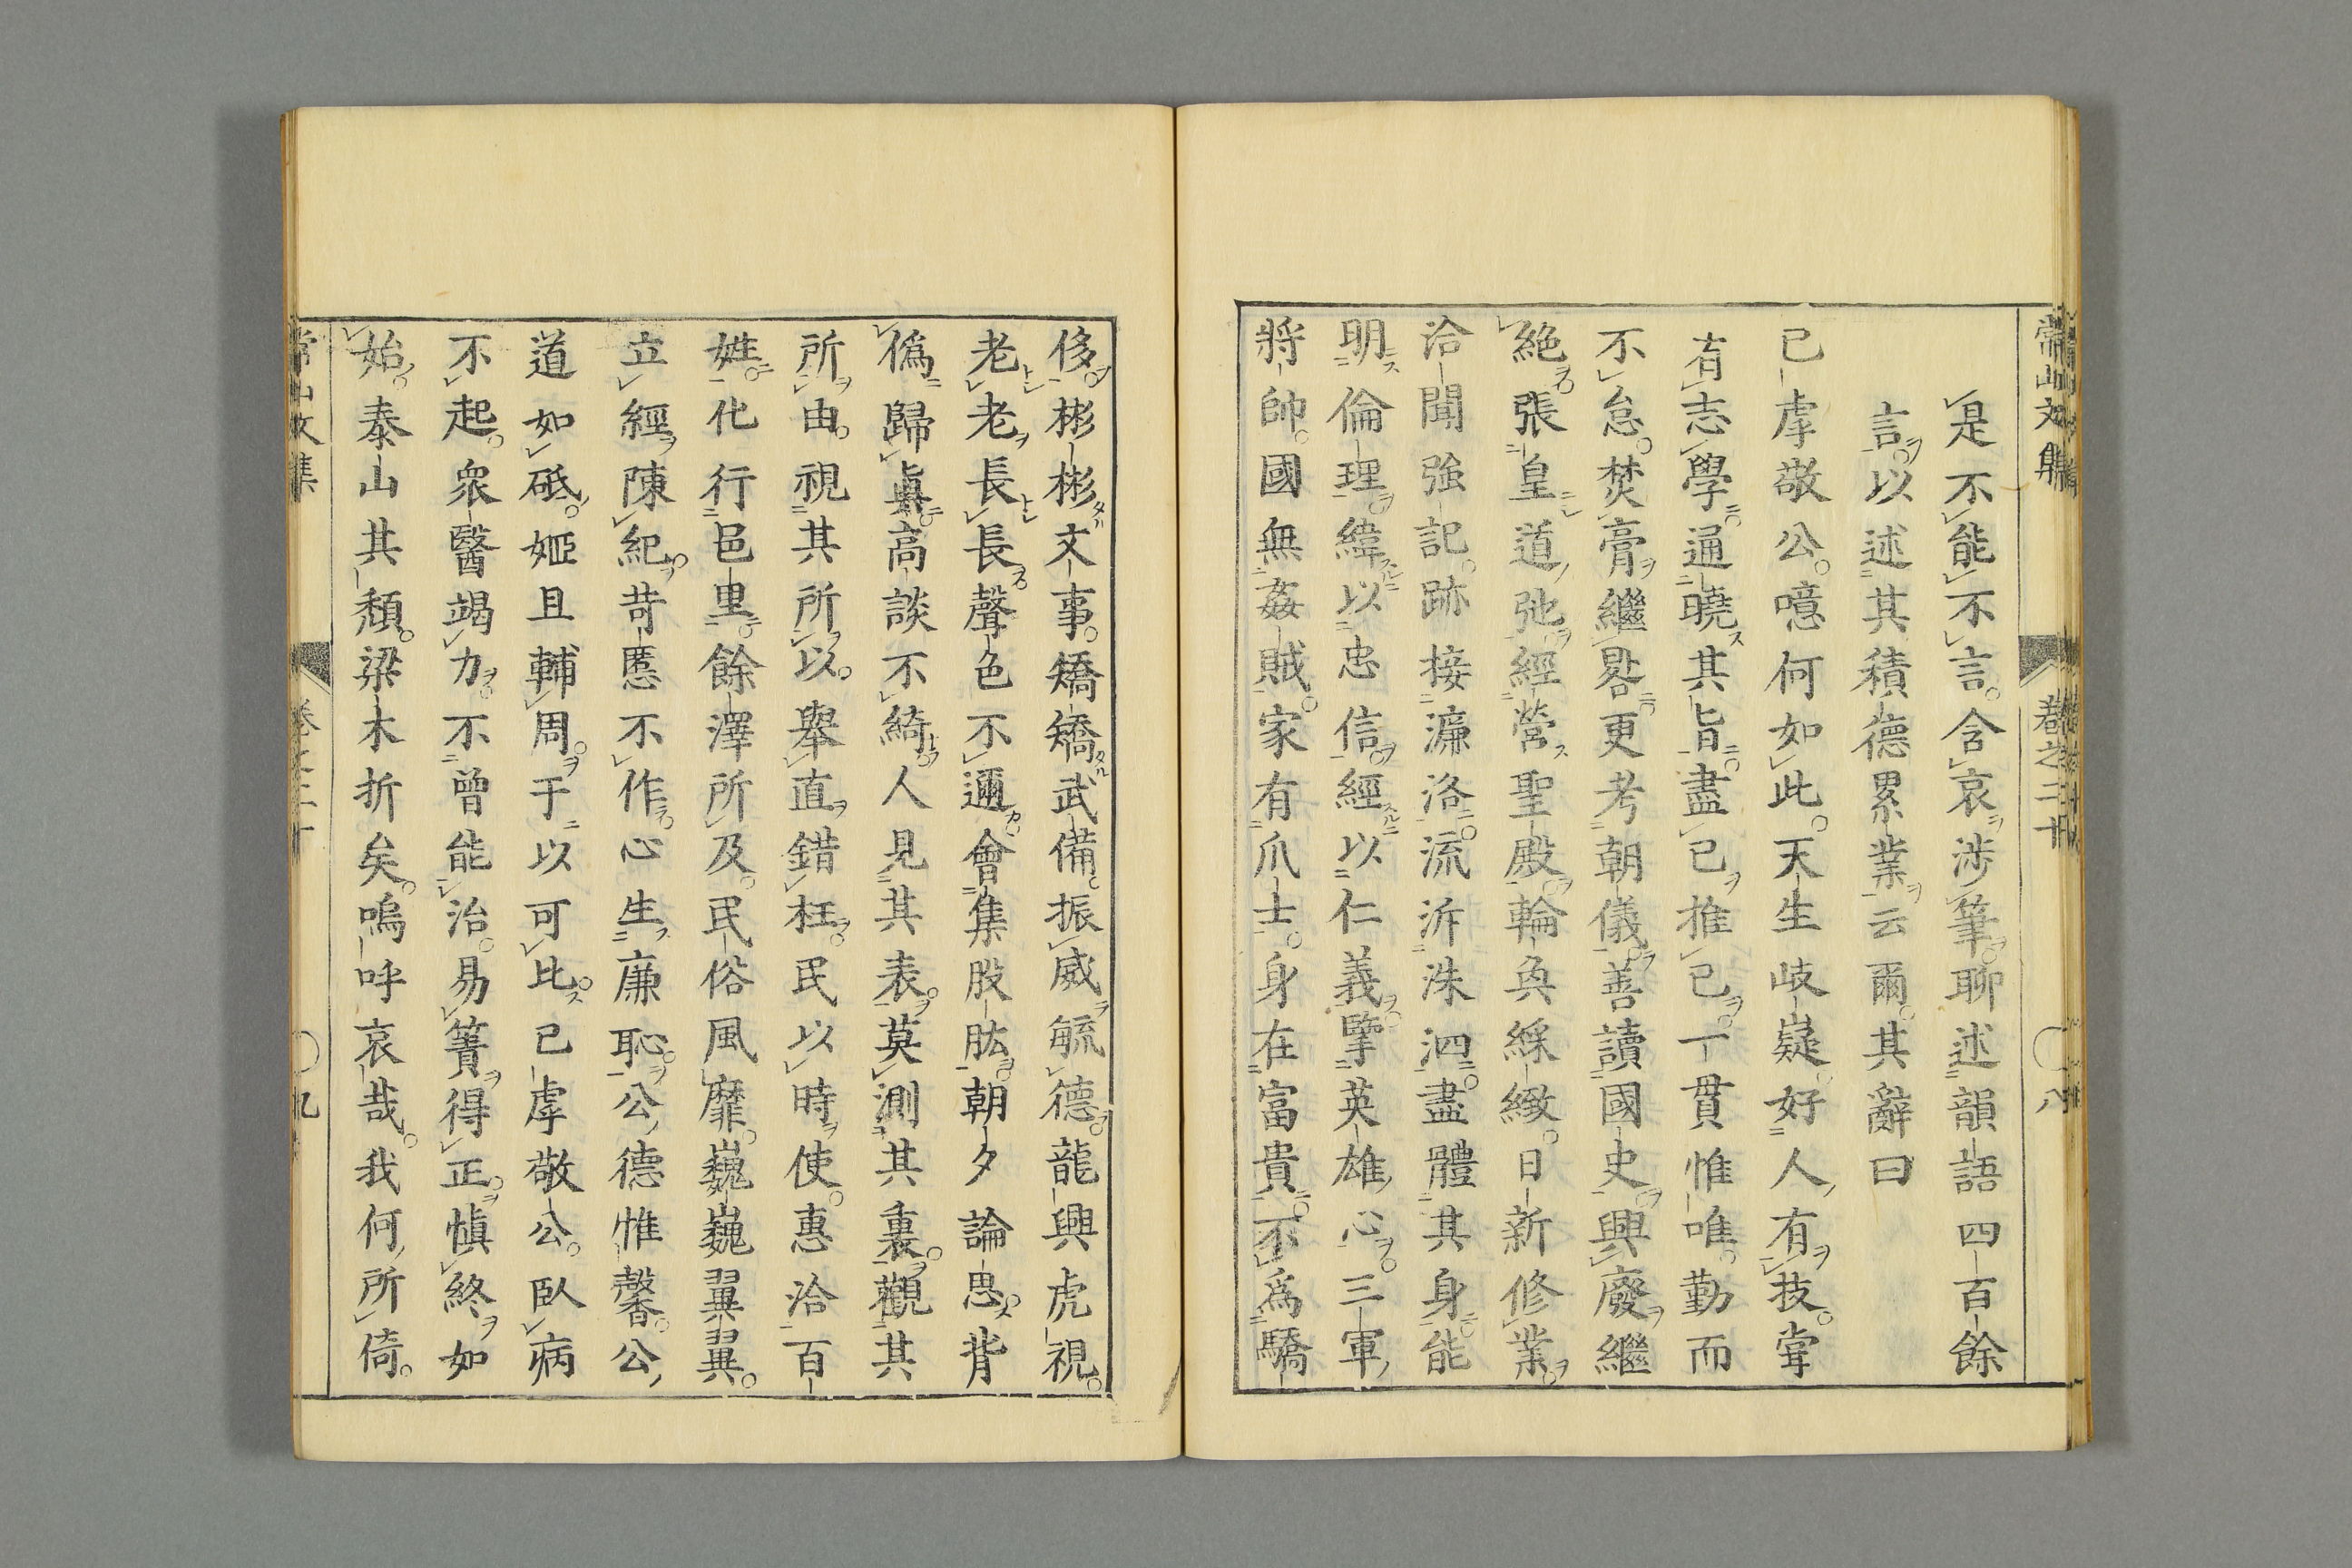 常山文集
卷之二十
八
是不能不言含哀涉筆聊述韻語四百餘
言以述其積德累業云爾其辭曰
已虖敬公噫何如此天生岐嶷好人有技甞
有志學通曉其旨盡已推已一貫惟唯勤而
不怠焚膏繼晷更考朝儀善讀國史興廢繼
絶張皇道弛經營聖殿輪奐綵緻日新修業
洽聞強記跡接濂洛流泝洙泗盡體其身能
明倫理緯以忠信經以仁義擥英雄心三軍
將帥國無姦賊家有爪士身在富貴不爲驕
侈彬彬文事矯矯武備振威毓德龍興虎視
老老長長聲色不邇會集股肱朝夕論思背
僞歸眞高談不綺人見其表莫測其裏觀其
所由視其所以舉直錯枉民以時使惠洽百
姓化行邑里餘澤所及民俗風靡巍巍翼翼
立經陳紀苛慝不作心生廉恥公德惟馨公
道如砥姬且輔周于以可比已虖敬公臥病
不起衆醫竭力不曾能治易簀得正愼終如
始泰山其頽梁木折矣嗚呼哀哉我何所倚
常山文集
卷之二十
九